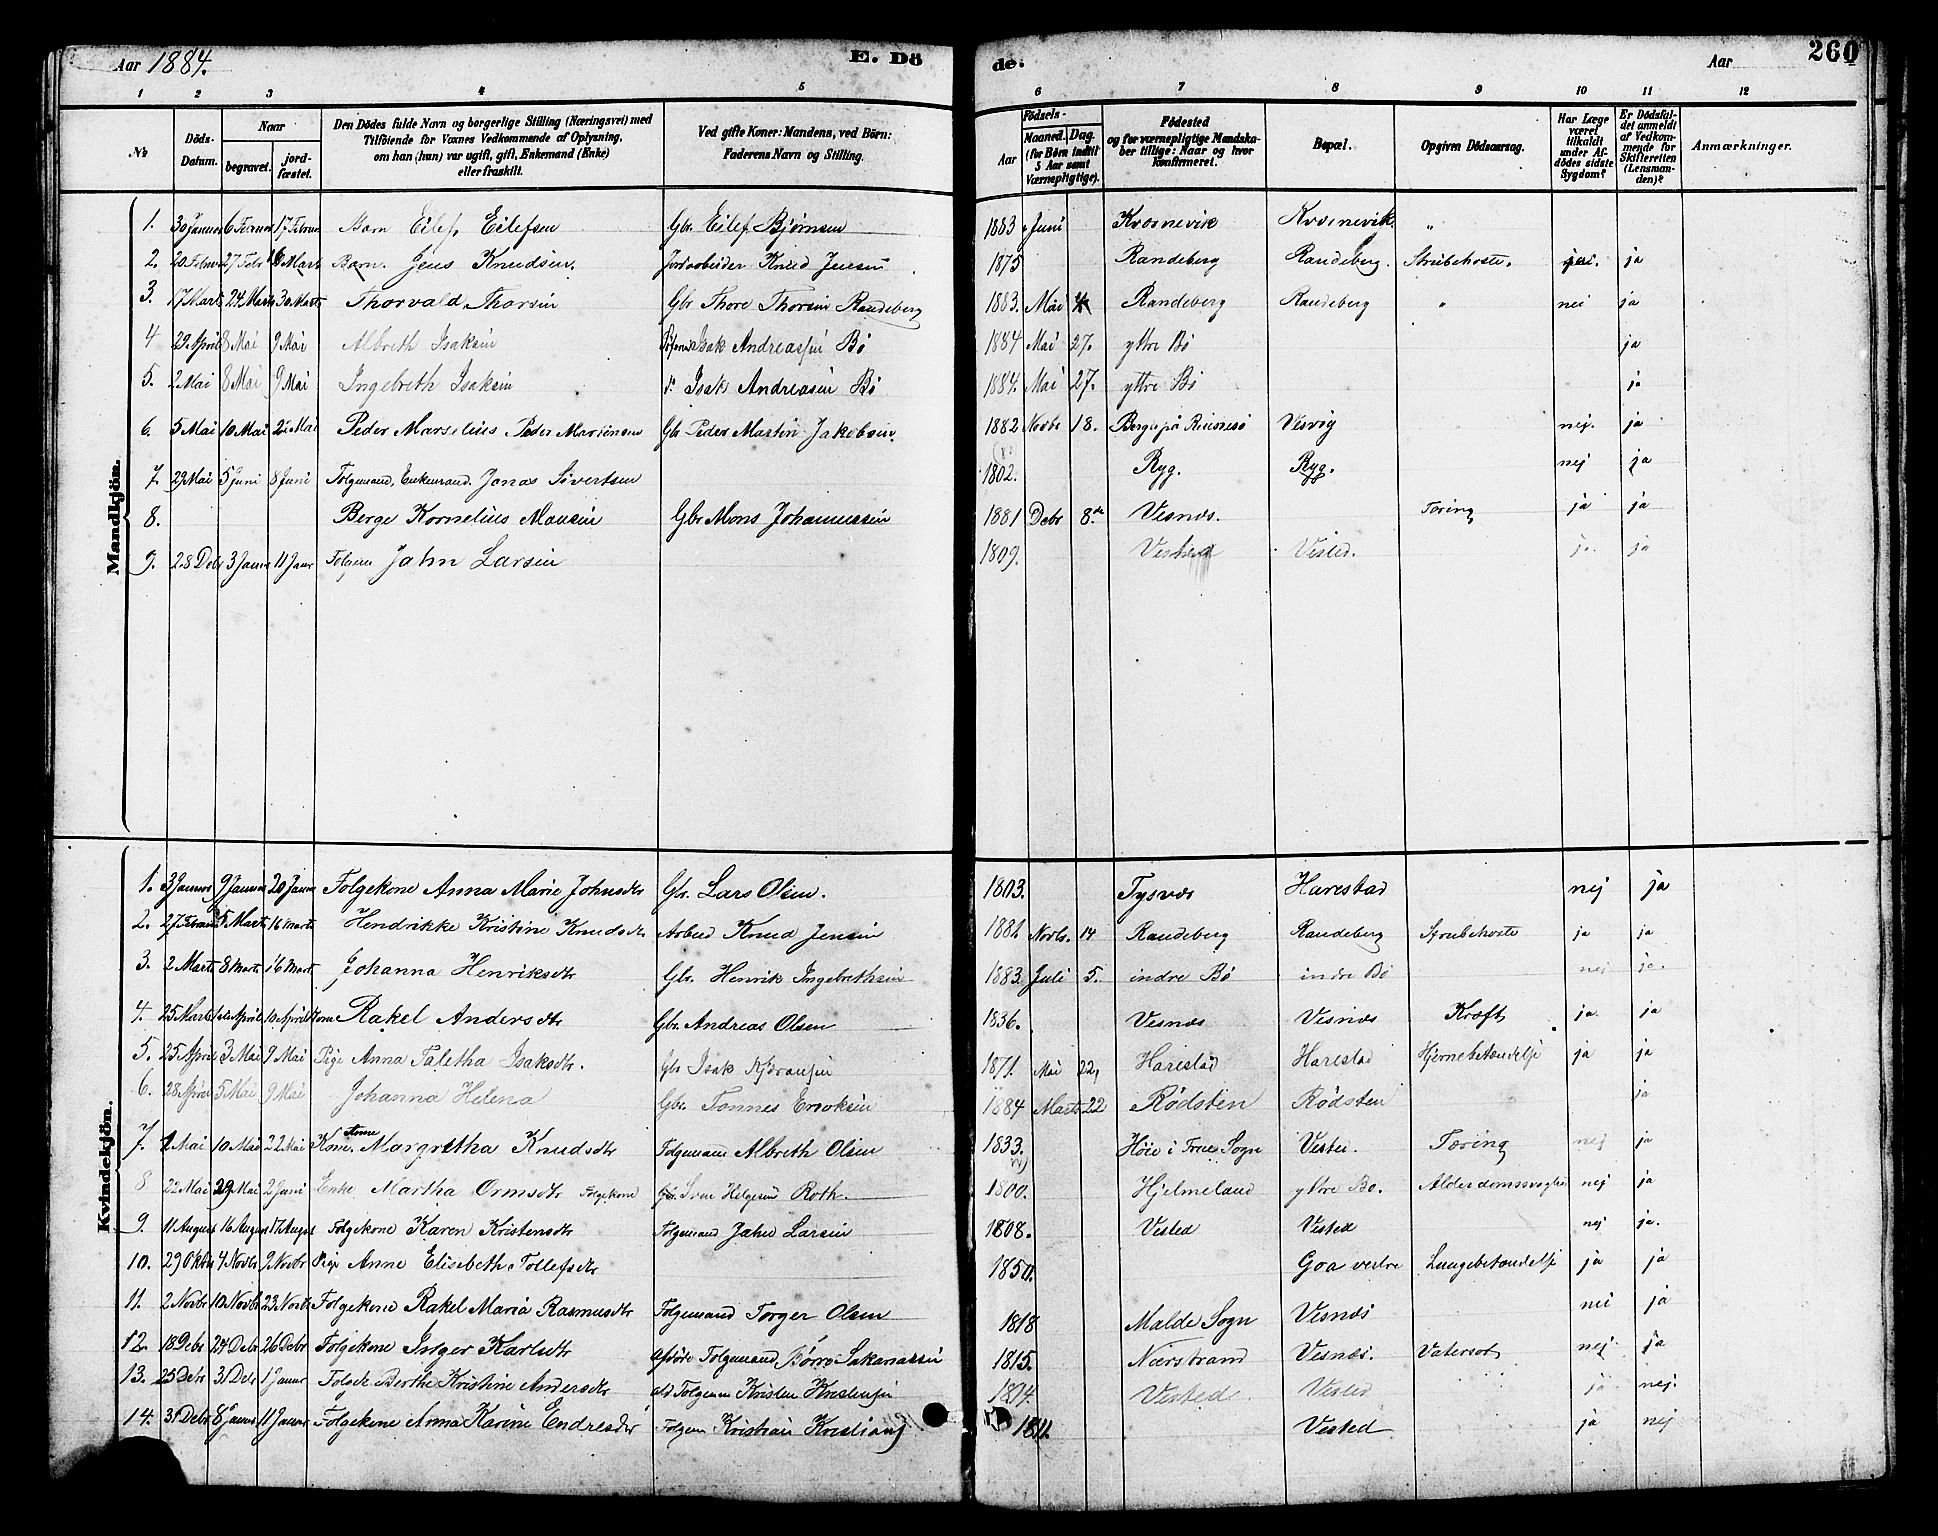 Aar 1884. E. Dö de. Aar 260
1 2 3 4 5 6 7 8 9 10 11 12
No. Döds-Datum. Naar begravet. jord-fæstet. Den Dödes fulde Navn og borgerlige Stilling (Næringsvei) med Tilföiende for Voxnes Vedkommende af Oplysning, om han (hun) var ugift, gift, Enkemand (Enke) eller fraskilt. Ved gifte Koner: Mandens, ved Börn: Faderens Navn og Stilling. Födsels- Aar Maaned. Dag. (for Börn indtil 5 Aar samt Værnepligtige). Födested og for værnepligtige Mandskaber tillige: Naar og hvor konfirmeret. Bopæl. Opgiven Dödsaarsag. Har Læge været tilkaldt under Afdödes sidste Sygdom? Er Dödsfaldet anmeldt af Vedkommende for Skifteretten (Lensmanden)? Anmærkninger.
Mandkjön.
1. 30 Januar 6 Februar 17 Februar Barn Eilef Eilefsen Gbr. Eilef Bjørnsen 1883 Juni Kvernevik Kvernevik. "
2. 20 Februar 27 Febr Marts Barn. Jens Knudsen. Jordarbeider Knud Jensen 1875 Randeberg Randeberg. Strubehoste. ja
3. 17 Marts 24 Marts 30 Marts Thorvald Thorsen Gbr Thore Thorsen Randeberg 1883. Mai Randeberg Randeberg " nei ja
4 29 April 8 Mai 9 Mai Albreth Isaksen Isak Andreassen Bø 1884 Mai 27. yttre Bø ja
5. 2 Mai 8 Mai 9 Mai Ingebreth Isaksen Isak Andreasen Bø 1884. Mai 27. yttre Bø ja
6. 5 Mai 10 Mai 22 Mai Peder Marselius Peder Martinsen Gbr Peder Martin Jakobsen. 1882 Novbr 18. Vesvig nej. ja
7. 29 Mai 5 Juni 8 Juni Folgemand, Enkemand. Jonas Sivertsen 1802. Ryg. Ryg. nej ja
8. Berge Kornelius Monsen Gbr Mons Johannessen 1881 Debr 8de Vesnes. Tæring ja ja
9. 28 Debr 3 Januar 11 Januar Folgem Jahn Larsen 1809. Vested Visted. ja ja
Kvindekjön.
1. 3 Januar 9 Januar 20 Januar Folgekone Anna Marie Johnsdtr Gbr. Lars Olsen. 1803. Tysvær Harestad nej ja
2. 27 Februar 5 Marts 16 Marts Hendrikke Kristine Knudsdtr Arbeid Knud Jensen 1881 Novbr. 14 Randeberg Randeberg Strubehoste ja ja
3. 2 Marts 8 Marts 16 Marts Johanna Henriksdtr Gbr. Henrik Ingebrethsen 1883. Juli 5. indre Bø indre Bø nej ja.
4. 25 Marts 1ste April 10 April Kone Rakel Andersdtr Gbr. Andreas Olsen 1836. Vesnes Vesnes Kræft ja. ja
5. 25 April 3 Mai 9 Mai Pige Anna Taletha Isaksdtr. Gbr Isak 1871. Mai 22, Harestad Harestad Hjernebetændelse ja ja
6. 28 April 5 Mai 9 Mai Johanna Helena Gbr. Tønnes Eriksen 1884 Marts 22 Rødsten Rødsten ja
7. 2 Mai 10 Mai 22 Mai Kone. Anne Margretha Knudsdtr Folgemand Albreth Olsen 1833. Høie i Sogn Vested. Tæring nej ja
8 22 Mai 29 Mai 2 Juni Enke Martha Ormsdtr Folgekone Sven Helgesen Roth. 1800. Hjelmeland yttre Bø. Alderdomssvaghed nej ja
9. 11 August 16 August 17 August Folgekone Karen Kristensdtr Folgemand Jahn Larsen 1808. Vested Vested nej ja.
10. 29 Oktbr 4 Novbr 9 Novbr Pige Anne Elisabeth Tollefsdtr 1850. Goa vestre Lungebetændelse ja ja
11. 2 Novbr 10 Novbr 23 Novbr Folgekone Rakel Maria Rasmusdtr Folgemand Torger Olsen 1818 Malde Sogn Vesnes nei ja
12. 18 Debr 24 Debr 26 Debr Folgekone Inger Karlsdtr afdøde Folgemand Børre Sakariassen 1815. Nærstrand Vesnes. Vatersot nej ja
13. 25 Debr 31 Debr 1 Januar Folgek Berthe Kristine Andersdtr afd Folgem Kristen Kristensen 1814. Vestede Vested ja nej.
14. 31 Debr 8 Januar 11 Januar Folgekone Anna Karine Endresdtr Folgem Kristian 1811. Vested ja nej